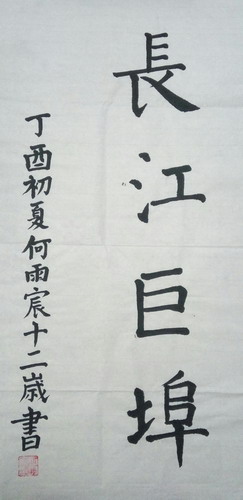 長江巨埠
丁酉初夏何雨宸十二歲書